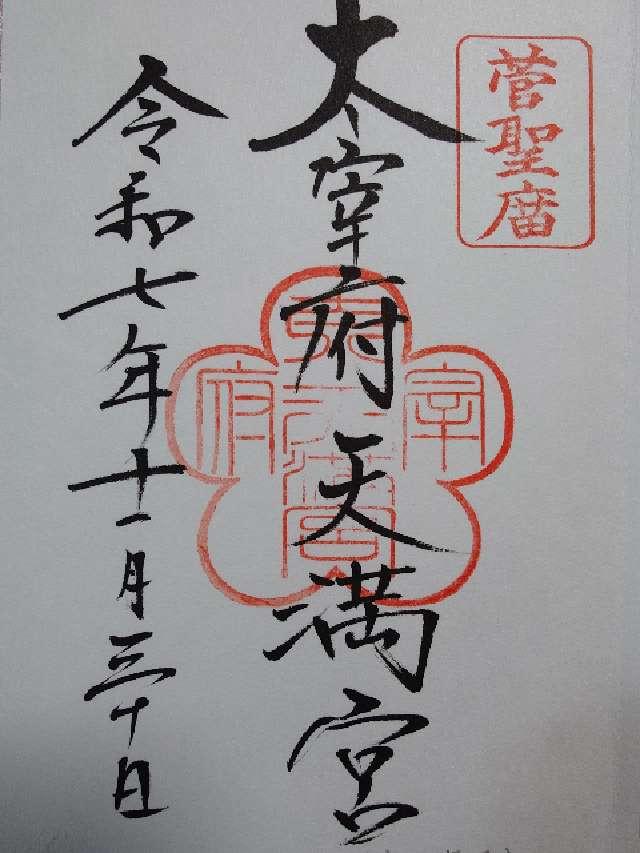 菅聖庿
太宰府天満宮
宰
府
天満宮
令和七年十一月三十日